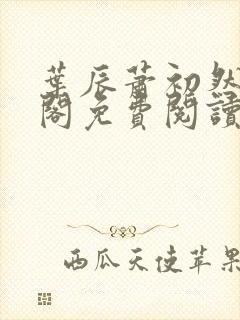 葉辰蕭初然
閣免費閱讀
西瓜天使苹果